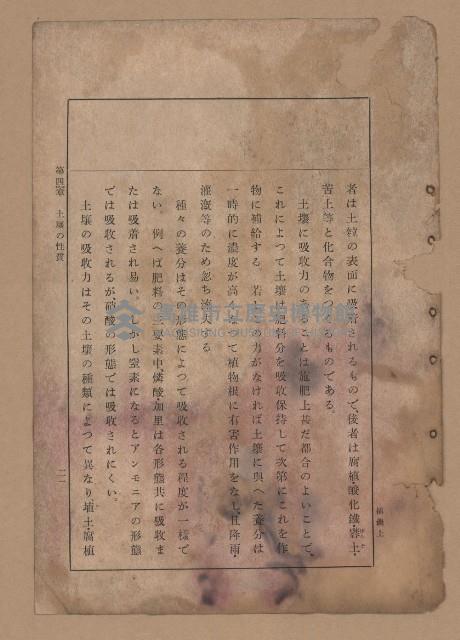 者は土粒の表面に吸着されるもので、後者は腐植・酸化鐵・礬土・
苦土等と化合物をつくるものである。
土壤に吸收力のあることは施肥上甚だ都合のよいことで、
これによつて土壤は肥料分を吸收保持して次第にこれを作
物に補給する。若しこの力がなければ土壤に與へた養分は
一時的に濃度が高くなつて植物根に有害作用をなし、且降雨・
灌漑等のため忽ち流失する。
種々の養分はその形態によつて吸收される程度が一樣で
ない。例へば肥料の三要素中燐酸加里は各形態共に吸收ま
たは吸着され易い。しかし窒素になるとアンモニアの形態
では吸收されるが硝酸の形態では吸收されにくい。
土壤の吸收力はその土壤の種類によつて異なり埴土・腐植
第四章 土壤の性質
二一
高雄市立歷史博物館